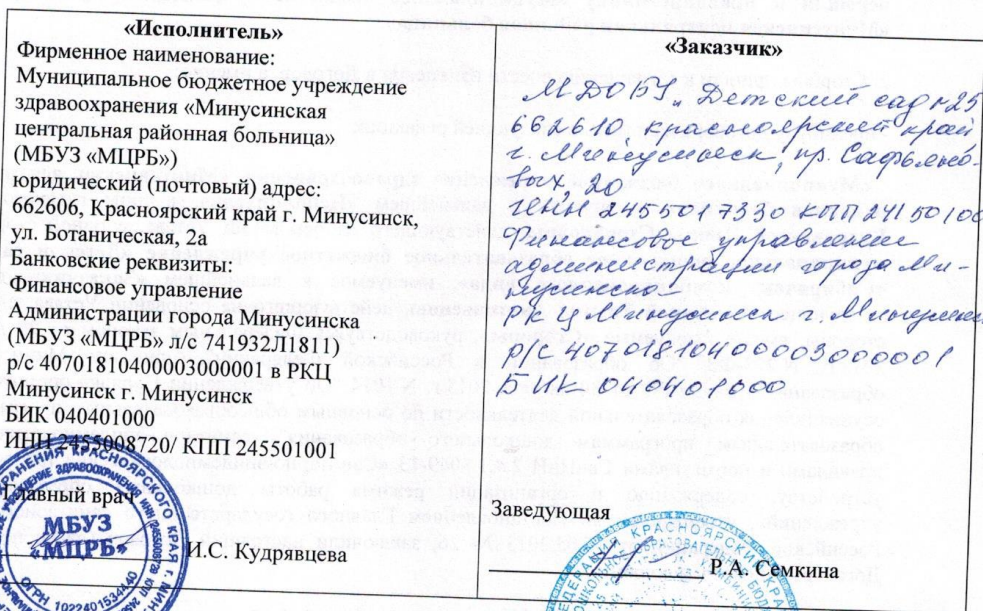 «Исполнитель»
Фирменное наименование:
Муниципальное бюджетное учреждение
здравоохранения «Минусинская
центральная районная больница»
(МБУЗ «МЦРБ»)
юридический (почтовый) адрес:
662606, Красноярский край г. Минусинск,
ул. Ботаническая, 2а
Банковские реквизиты:
Финансовое управление
Администрации города Минусинска
(МБУЗ «МЦРБ» л/с 741932Л1811)
р/с 40701810400003000001 в РКЦ
Минусинск г. Минусинск
БИК 040401000
ИНН 2455008720/ КПП 245501001
Главный врач
И.С. Кудрявцева
МБУЗ
«МЦРБ»
«Заказчик»
МДОБУ „Детский сад № 25
662610 красноярский край
г. Минусинск, пр. Сафьяно-
вых, 20
ИНН 2455017330 КПП
Финансовое управление
администрации города Ми-
нусинска
РКЦ Минусинск г. Минусинск
р/с 40701810400003000001
БИК 040401000
Заведующая
Р.А. Семкина